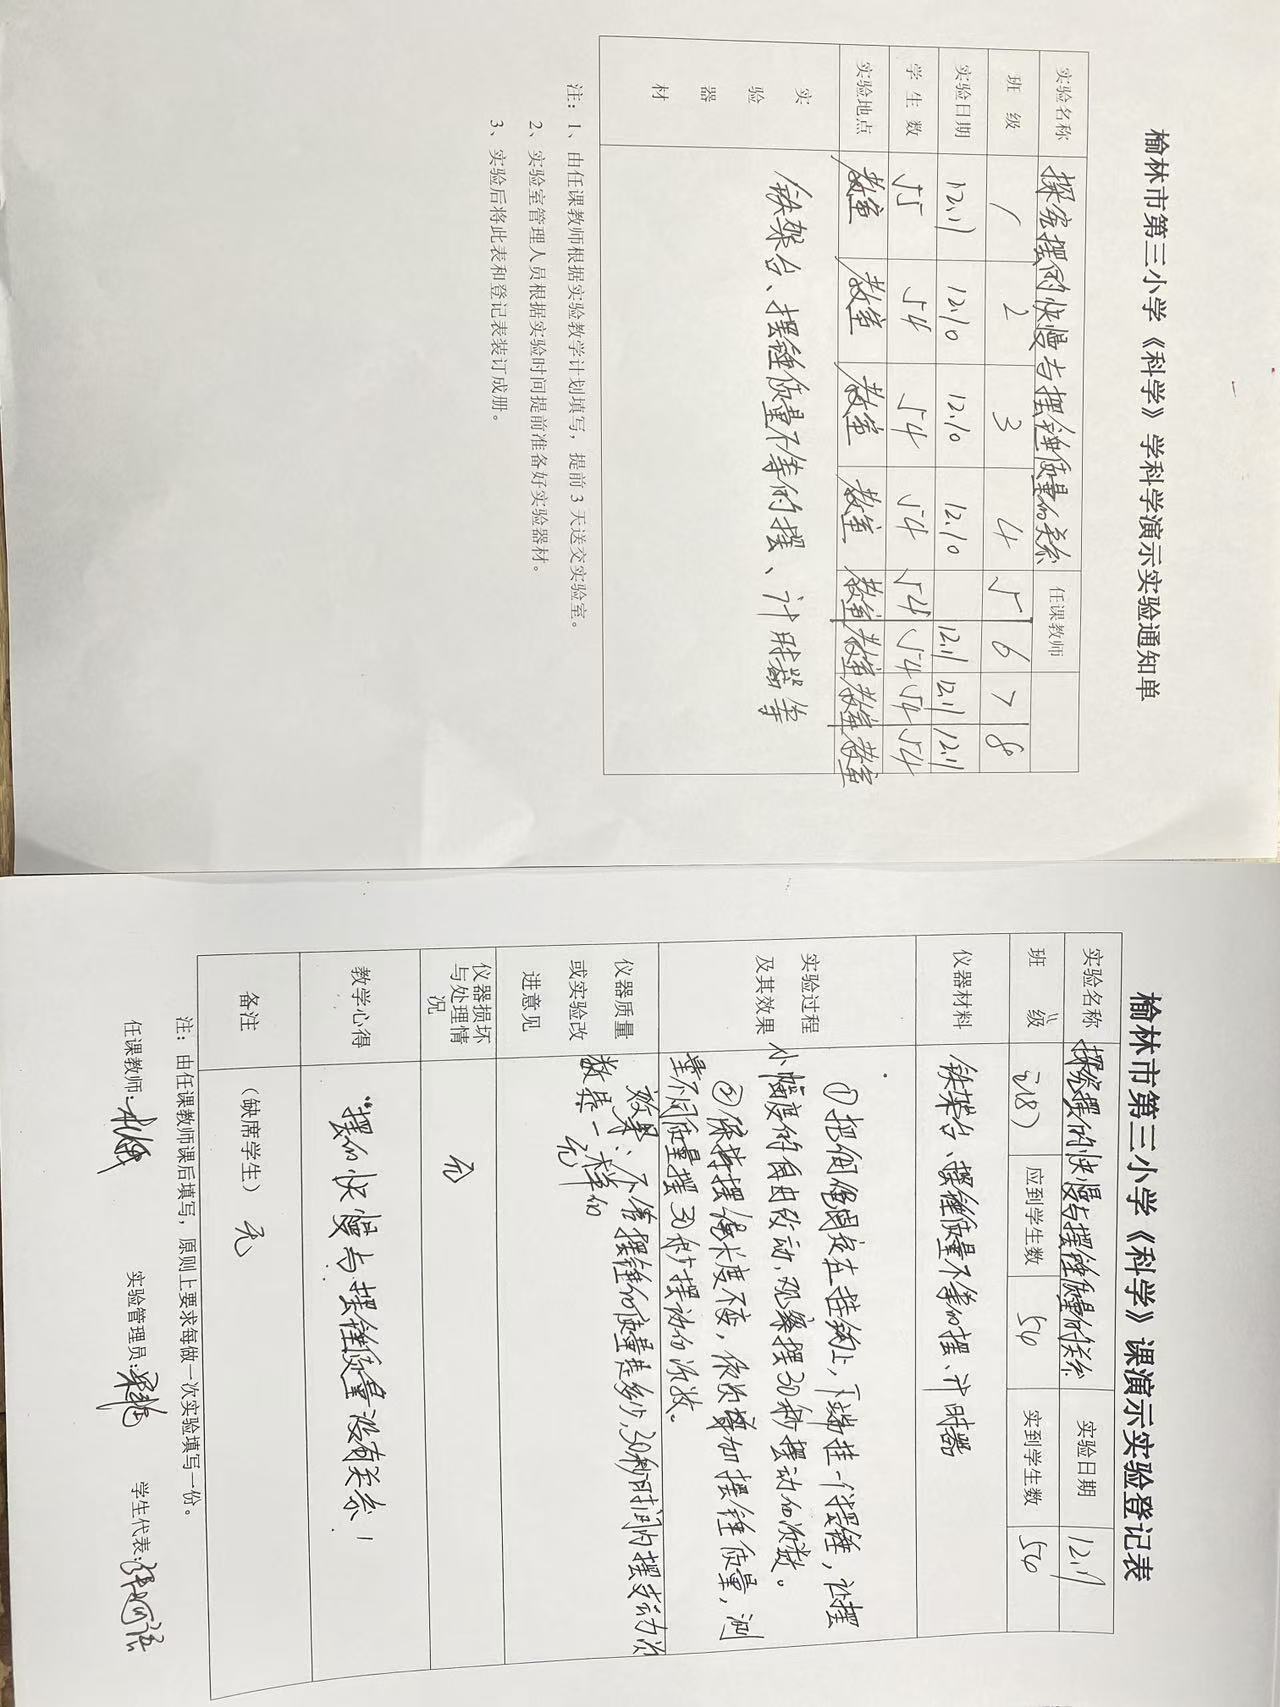 榆林市第三小学《科学》学科学演示实验通知单
实验名称 探究摆的快慢与摆锤质量的关系 任课教师
班 级 1 2 3 4 5 6 7 8
实验日期 12.11 12.10 12.10 12.10 12.11 12.11 12.11
学生数 55 54 54 54 54 54 54 54
实验地点 教室 教室 教室 教室 教室 教室 教室 教室
实验器材 铁架台、摆锤质量不等的摆、计时器等
注：1、由任课教师根据实验教学计划填写，提前3天送交实验室。
2、实验室管理人员根据实验时间提前准备好实验器材。
3、实验后将此表和登记表装订成册。
榆林市第三小学《科学》课演示实验登记表
实验名称 探究摆的快慢与摆锤质量的关系 实验日期 12.11
班 级 应到学生数 54 实到学生数 54
仪器材料 铁架台、摆锤质量不等的摆、计时器
实验过程及其效果
①把细绳固定在挂钩上，下端挂一个摆锤，让摆
小幅度的自由改动，观察摆30秒摆动的次数。
②保持摆绳长度不变，依次增加摆锤质量，测
量不同质量摆30秒摆动的次数。
效果：不管摆锤的质量是多少，30秒时间内摆动次
数是一样的
仪器质量或实验改进意见 无
仪器损坏与处理情况 无
教学心得 “摆的快慢与摆锤质量没有关系！
备注 （缺席学生） 无
注：由任课教师课后填写，原则上要求每做一次实验填写一份。
任课教师： 实验管理员： 学生代表：